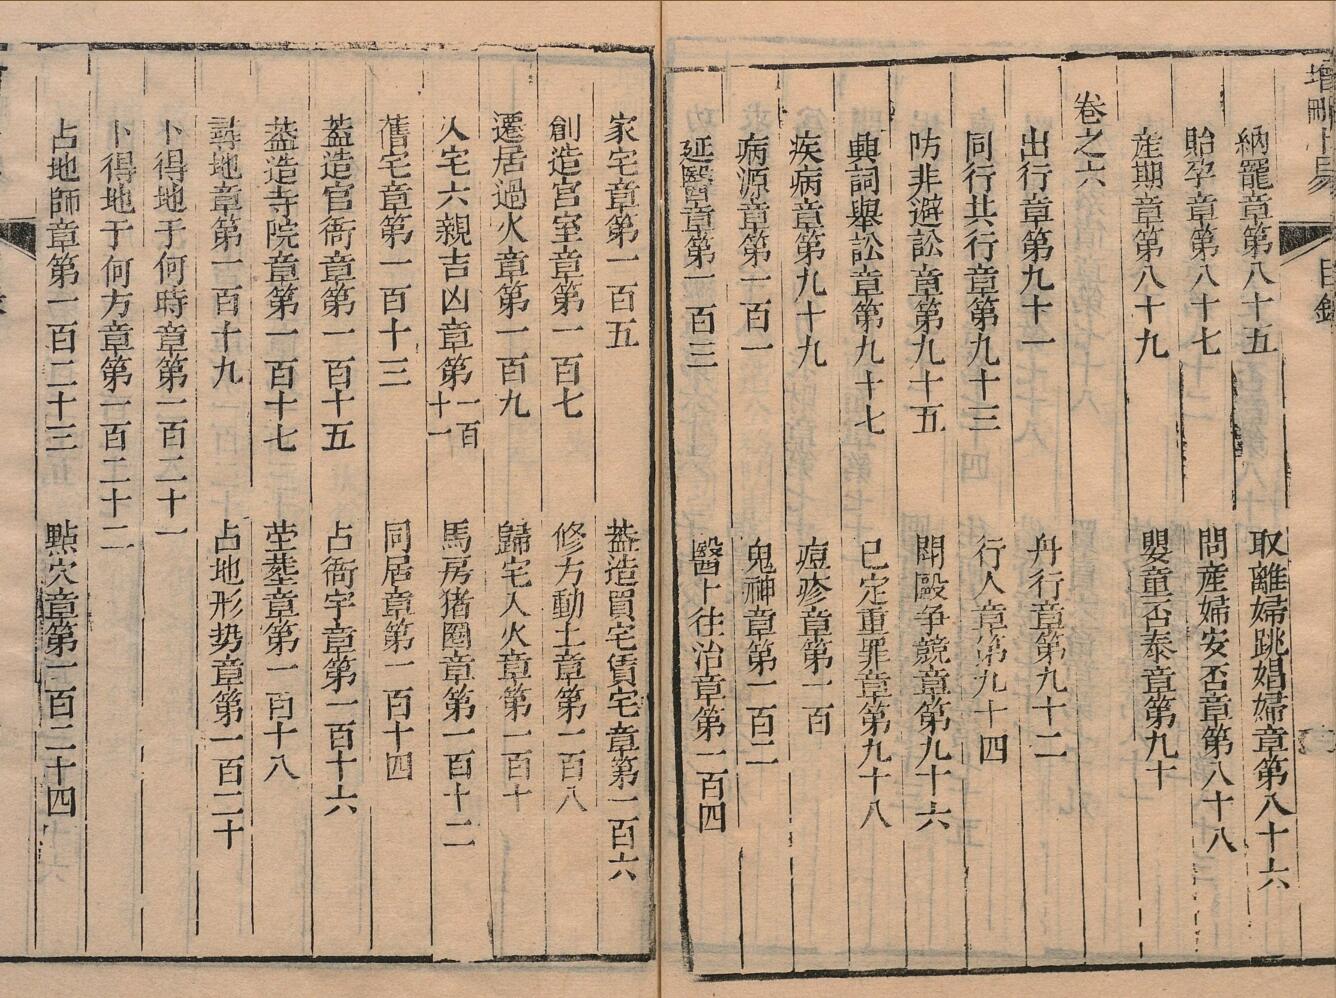 增刪卜易
目錄
納寵章第八十五
取離婦跳娼婦章第八十六
胎孕章第八十七
問産婦安否章第八十八
産期章第八十九
嬰童否泰章第九十
卷之六
出行章第九十一
舟行章第九十二
同行共行章第九十三
行人章第九十四
防非避訟章第九十五
鬪毆争競章第九十六
興詞舉訟章第九十七
已定重罪章第九十八
疾病章第九十九
痘疹章第一百
病源章第一百一
鬼神章第一百二
延醫章第一百三
醫卜往治章第一百四
家宅章第一百五
蓋造買宅賃宅章第一百六
創造宫室章第一百七
修方動土章第一百八
遷居過火章第一百九
歸宅入火章第一百十
入宅六親吉凶章第一百十一
馬房猪圈章第一百十二
舊宅章第一百十三
同居章第一百十四
蓋造官衙章第一百十五
占衙宇章第一百十六
蓋造寺院章第一百十七
塋墓章第一百十八
尋地章第一百十九
占地形势章第一百二十
卜得地于何時章第一百二十一
卜得地于何方章第一百二十二
占地師章第一百二十三
點穴章第一百二十四